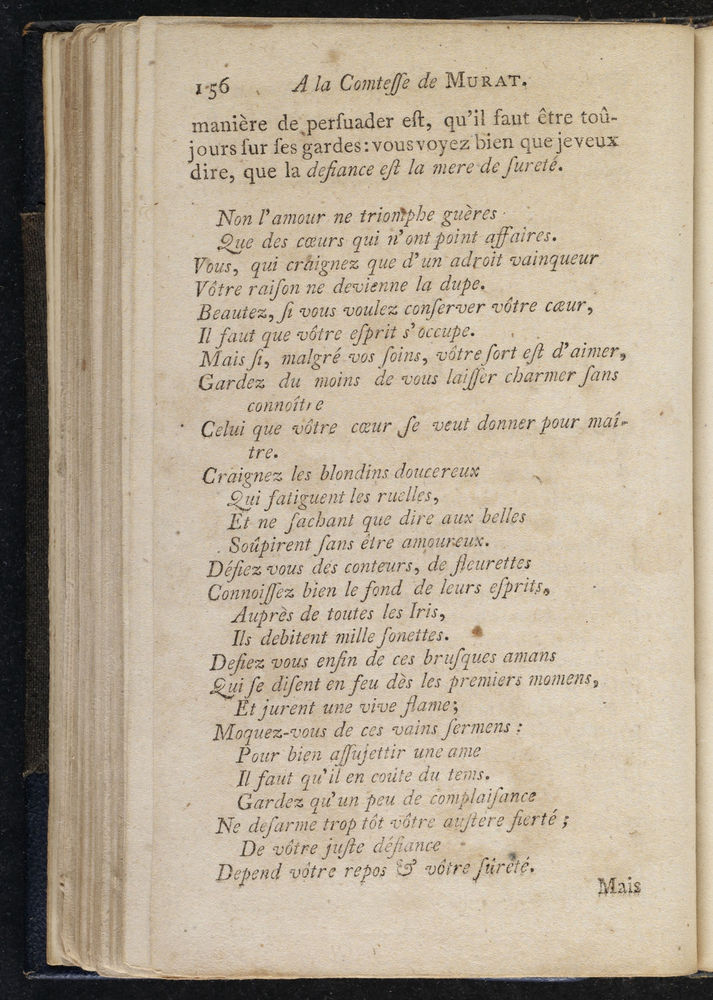 156 A la Comteſſe de MURAT.
manière de perſuader eſt, qu'il faut être toû-
jours ſur ſes gardes: vous voyez bien que je veux
dire, que la defiance eſt la mere de ſureté.
Non l'amour ne triomphe guères
Que des cœurs qui n'ont point affaires.
Vous, qui craignez que d'un adroit vainqueur
Vôtre raiſon ne devienne la dupe.
Beautez, ſi vous voulez conſerver vôtre cœur,
Il faut que vôtre eſprit s'occupe.
Mais ſi, malgré vos ſoins, vôtre ſort eſt d'aimer,
Gardez du moins de vous laiſſer charmer ſans
connoître
Celui que vôtre cœur ſe veut donner pour maî-
tre.
Craignez les blondins doucereux
Qui fatiguent les ruelles,
Et ne ſachant que dire aux belles
Soûpirent ſans être amoureux.
Défiez vous des conteurs, de fleurettes
Connoiſſez bien le fond de leurs eſprits,
Auprès de toutes les Iris,
Ils debitent mille ſonettes.
Defiez vous enfin de ces bruſques amans
Qui ſe diſent en feu dès les premiers momens,
Et jurent une vive flame;
Moquez-vous de ces vains ſermens:
Pour bien aſſujettir une ame
Il faut qu'il en coûte du tems.
Gardez qu'un peu de complaiſance
Ne deſarme trop tôt vôtre auſtere fierté;
De vôtre juſte défiance
Depend vôtre repos & vôtre ſûreté.
Mais